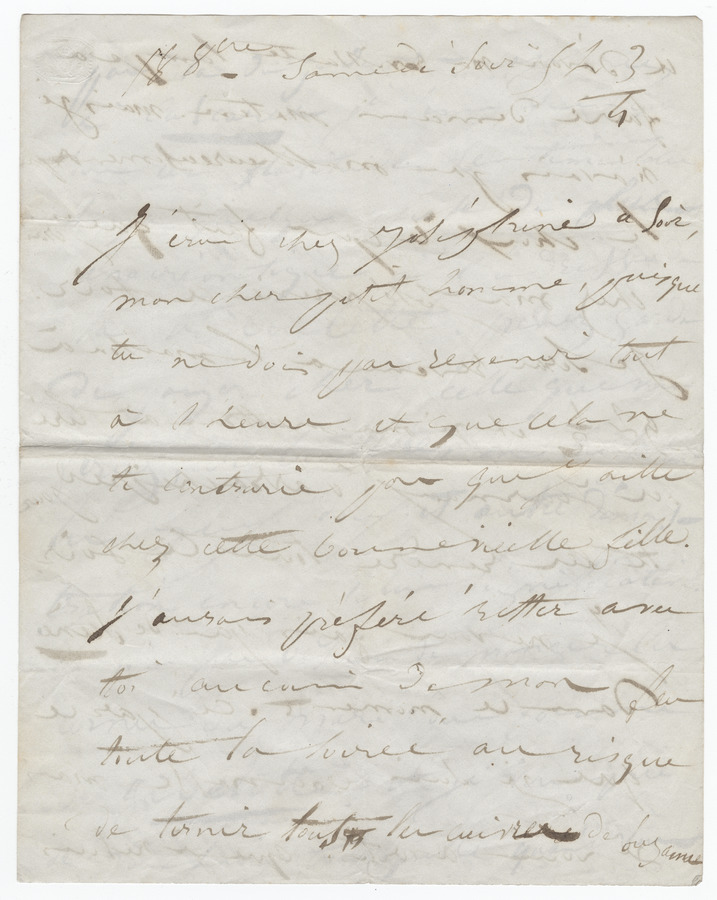 8bre Samedi soir 5 h 3/4
J'irai chez Joséphine ce soir,
mon cher petit homme, puisque
tu ne dois pas revenir tout
à l'heure et que cela ne
te contrarie pas que j'aille
chez cette bonne vieille fille.
J'aurais préféré rester avec
toi au coin de mon feu
toute la soirée au risque
de ternir tous les cuivres de Suzanne